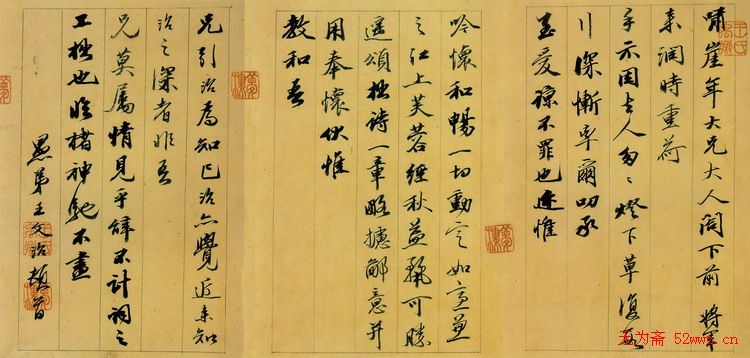 嘯崖年大兄大人閣下前 將軍
来潤時重荷
手示因去人匆匆燈下草復數
行深慚率爾叨承
至愛諒不罪也近惟
吟懷和暢一切動定如意
之江上芙蓉經秋益麗可勝
遥頌拙詩一章略攄鄙意并
用奉懷伏惟
教和
兄引治為知已治亦覺近来知
治之深者非吾
兄莫屬情見乎辭不計詞之
工拙也臨楮神馳不盡
愚弟王文治頓首
无为斋 52wwz.cn